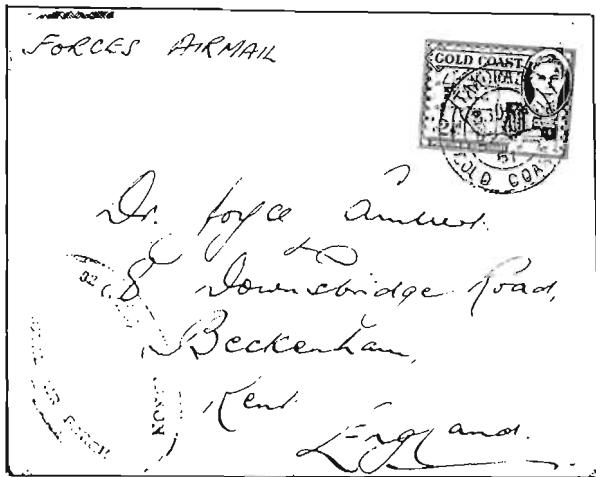 FORCES AIRMAIL
GOLD COAST
TAKORADI
51
GOLD COAST
Dr. Joyce
8 Downsbridge Road,
Beckenham,
Kent
England.